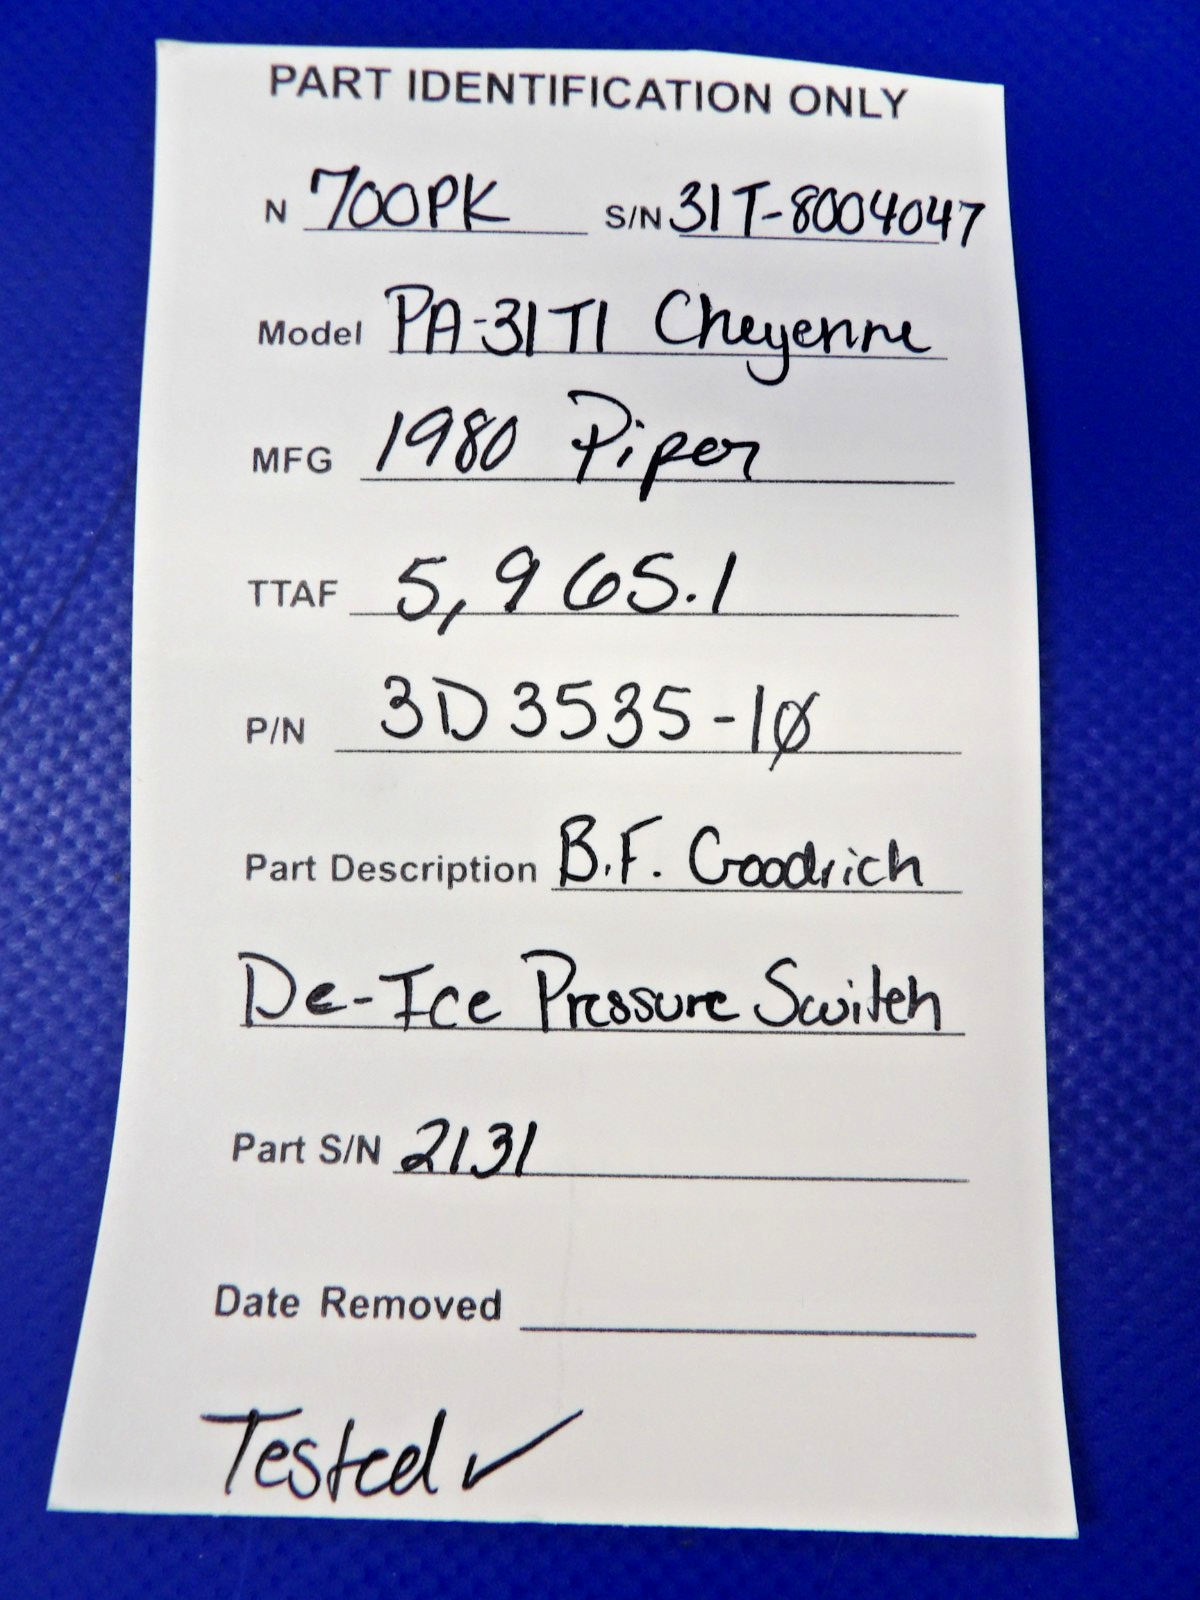 PART IDENTIFICATION ONLY
N 700PK S/N 31T-8004047
Model PA-31T1 Cheyenne
MFG 1980 Piper
TTAF 5,965.1
P/N 3D3535-1Ø
Part Description B.F. Goodrich
De-Ice Pressure Switch
Part S/N 2131
Date Removed
Tested ✓